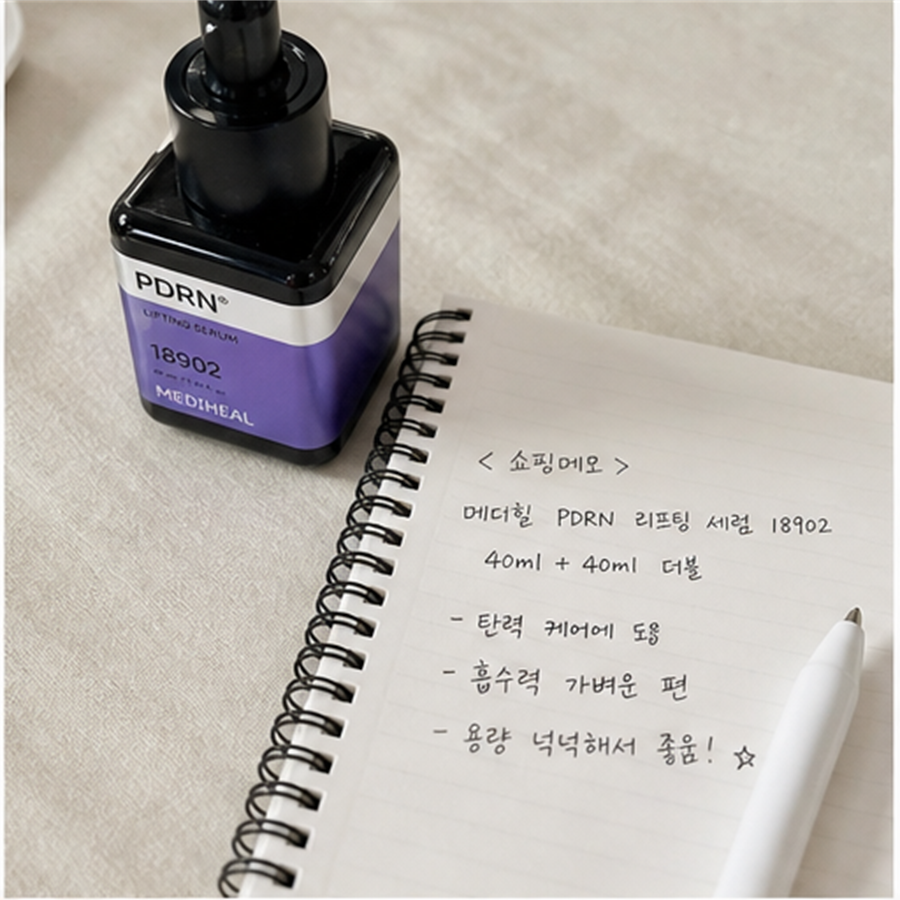 PDRN®
LIFTING SERUM
18902
MEDIHEAL
< 쇼핑메모 >
메더힐 PDRN 리프팅 세럼 18902
40ml + 40ml 더블
- 탄력 케어에 도움
- 흡수력 가벼운 편
- 용량 넉넉해서 좋움! ☆